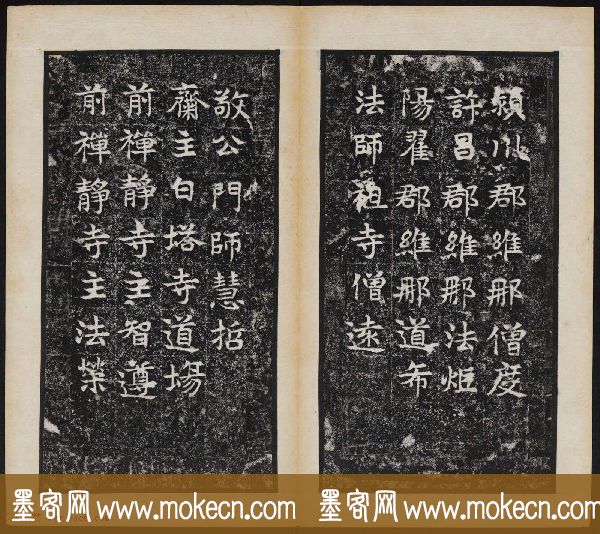 潁川郡維那僧度
許昌郡維那法炬
陽翟郡維那道布
法師祖寺僧遠
敬公門師慧哲
齋主白塔寺道場
前禪静寺主智遵
前禪静寺主法榮
墨客网 www.mokecn.com 墨客网 www.mokecn.com